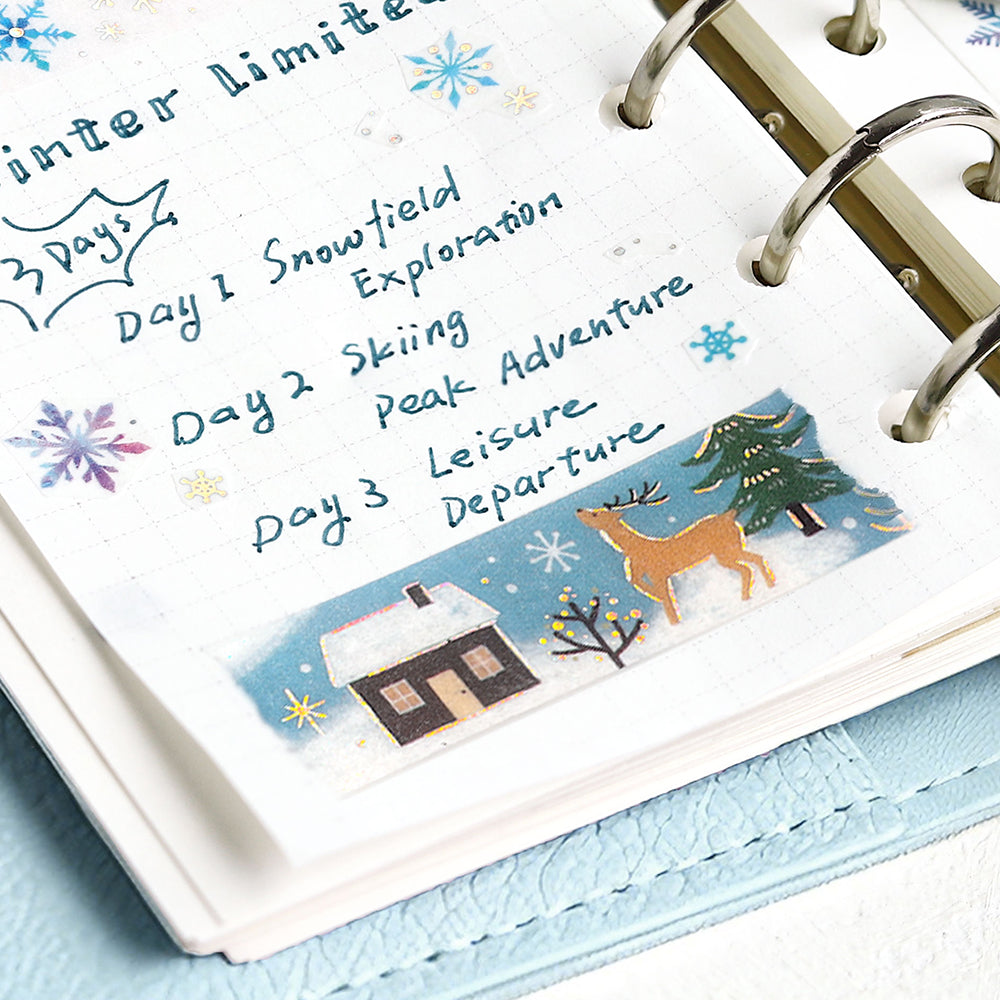 Winter Limited
3 Days
Day 1 Snowfield
Exploration
Day 2 Skiing
Peak Adventure
Day 3 Leisure
Departure